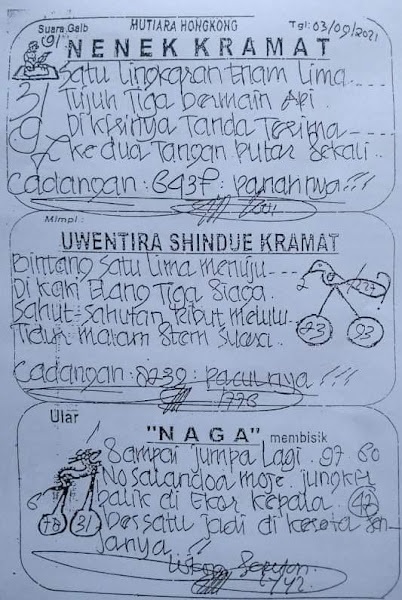 Suara Gaib MUTIARA HONGKONG Tgl: 03/09/2021
NENEK KRAMAT
Satu Lingkaran Enam Lima
Tujuh Tiga bermain Api
Di Kirinya Tanda Terima
Ke dua Tangan Putar Sekali
Cadangan: 6437: Panahnya !!!
Mimpi:
UWENTIRA SHINDUE KRAMAT
Bintang Satu Lima menuju
Di Kaki Elang Tiga Siaga
Sahut-Sahutan Ribut melulu
Tidur malam
Cadangan: 8239: Paculnya !!!
1778
73 93
Ular
"NAGA" membisik
Sampai Jumpa Lagi. 97 60
balik di Ekor Kepala 48
Des satu jadi di
Janya !!
78 31